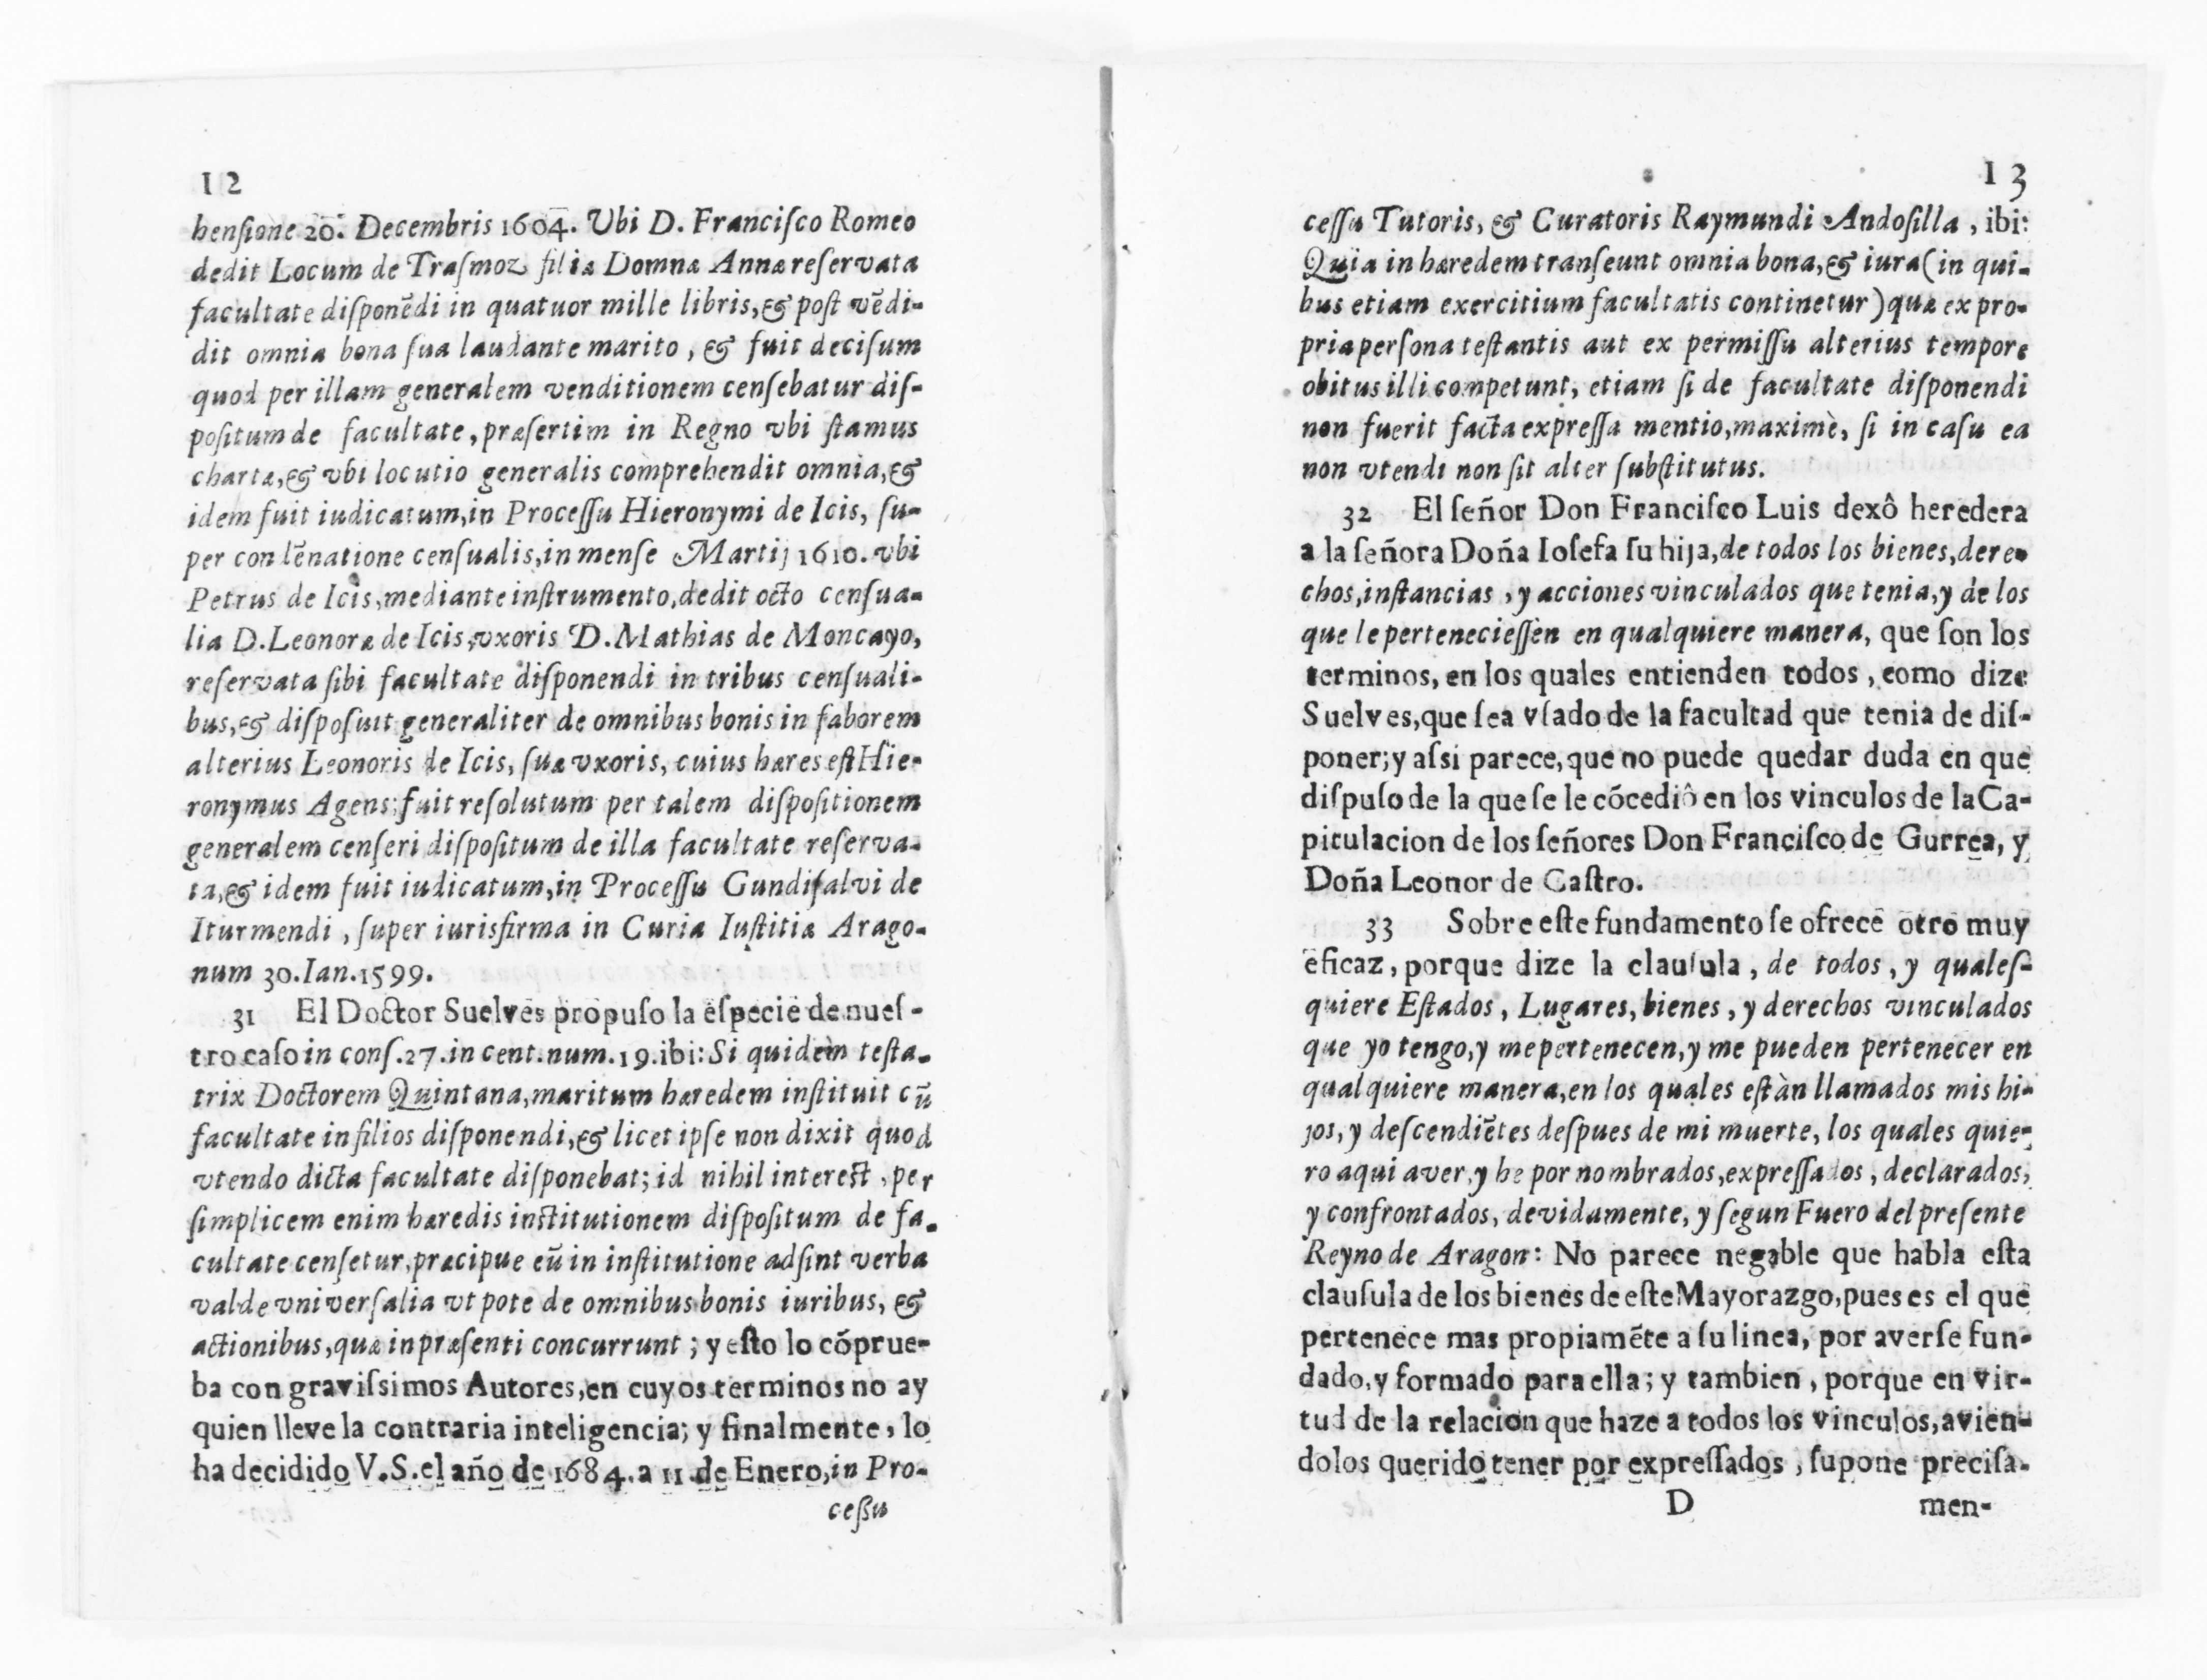 12
henſione 20. Decembris 1604. Ubi D. Franciſco Romeo
dedit Locum de Traſmoz filiæ Domnæ Annæ reſervata
facultate diſponẽdi in quatuor mille libris,& poſt vẽdi-
dit omnia bona ſua laudante marito, & fuit deciſum
quod per illam generalem venditionem cenſebatur diſ-
poſitum de facultate, præſertim in Regno vbi ſtamus
chartæ,& vbi locutio generalis comprehendit omnia,&
idem fuit iudicatum,in Proceſſu Hieronymi de Icis, ſu-
per con lẽnatione cenſualis,in menſe Martij 1610. vbi
Petrus de Icis,mediante inſtrumento,dedit octo cenſua-
lia D.Leonoræ de Icis,vxoris D.Mathias de Moncayo,
reſervata ſibi facultate diſponendi in tribus cenſuali-
bus,& diſpoſuit generaliter de omnibus bonis in faborem
alterius Leonoris de Icis, ſuæ vxoris, cuius hæres eſt Hie-
ronymus Agens;fuit reſolutum per talem diſpoſitionem
generalem cenſeri diſpoſitum de illa facultate reſerva-
ta,& idem fuit iudicatum,in Proceſſu Gundiſalvi de
Iturmendi, ſuper iurisfirma in Curia Iuſtitiæ Arago-
num 30.Ian.1599.
31 El Doctor Suelves propuſo la eſpecie de nueſ-
tro caſo in conſ.27.in cent.num.19.ibi: Si quidem teſta-
trix Doctorem Quintana,maritum hæredem inſtituit cũ
facultate in filios diſponendi,& licet ipſe non dixit quod
vtendo dicta facultate diſponebat; id nihil intereſt, per
ſimplicem enim hæredis inſtitutionem diſpoſitum de fa-
cultate cenſetur,præcipue eũ in inſtitutione adſint verba
valde vniverſalia vt pote de omnibus bonis iuribus, &
actionibus,quæ in præſenti concurrunt; y eſto lo cóprue-
ba con graviſsimos Autores,en cuyos terminos no ay
quien lleve la contraria inteligencia; y finalmente, lo
ha decidido V.S.el año de 1684.a 11 de Enero,in Pro-
ceßu
13
ceſſu Tutoris, & Curatoris Raymundi Andoſilla, ibi:
Quia in hæredem tranſeunt omnia bona,& iura (in qui-
bus etiam exercitium facultatis continetur) quæ ex pro-
pria perſona teſtantis aut ex permiſſu alterius tempore
obitus illi competunt, etiam ſi de facultate diſponendi
non fuerit facta expreſſa mentio,maximè, ſi in caſu ea
non vtendi non ſit alter ſubſtitutus.
32 El ſeñor Don Franciſco Luis dexô heredera
a la ſeñora Doña Ioſefa ſu hija,de todos los bienes,dere-
chos,inſtancias, y acciones vinculados que tenia,y de los
que le pertenecieſſen en qualquiere manera, que ſon los
terminos, en los quales entienden todos, como dize
Suelves,que ſea vſado de la facultad que tenia de diſ-
poner;y aſsi parece,que no puede quedar duda en que
diſpuſo de la que ſe le cócediô en los vinculos de la Ca-
pitulacion de los ſeñores Don Franciſco de Gurrea, y
Doña Leonor de Caſtro.
33 Sobre eſte fundamento ſe ofrece otro muy
eficaz, porque dize la clauſula, de todos, y qualeſ-
quiere Eſtados, Lugares, bienes, y derechos vinculados
que yo tengo,y me pertenecen,y me pueden pertenecer en
qualquiere manera,en los quales eſtàn llamados mis hi-
jos, y deſcendiẽtes deſpues de mi muerte, los quales quie-
ro aqui aver,y he por nombrados,expreſſados, declarados,
y confrontados, devidamente, y ſegun Fuero del preſente
Reyno de Aragon: No parece negable que habla eſta
clauſula de los bienes de eſte Mayorazgo,pues es el que
pertenece mas propiamẽte a ſu linea, por averſe fun-
dado,y formado para ella; y tambien, porque en vir-
tud de la relacion que haze a todos los vinculos,avien-
dolos querido tener por expreſſados, ſupone preciſa-
D men-